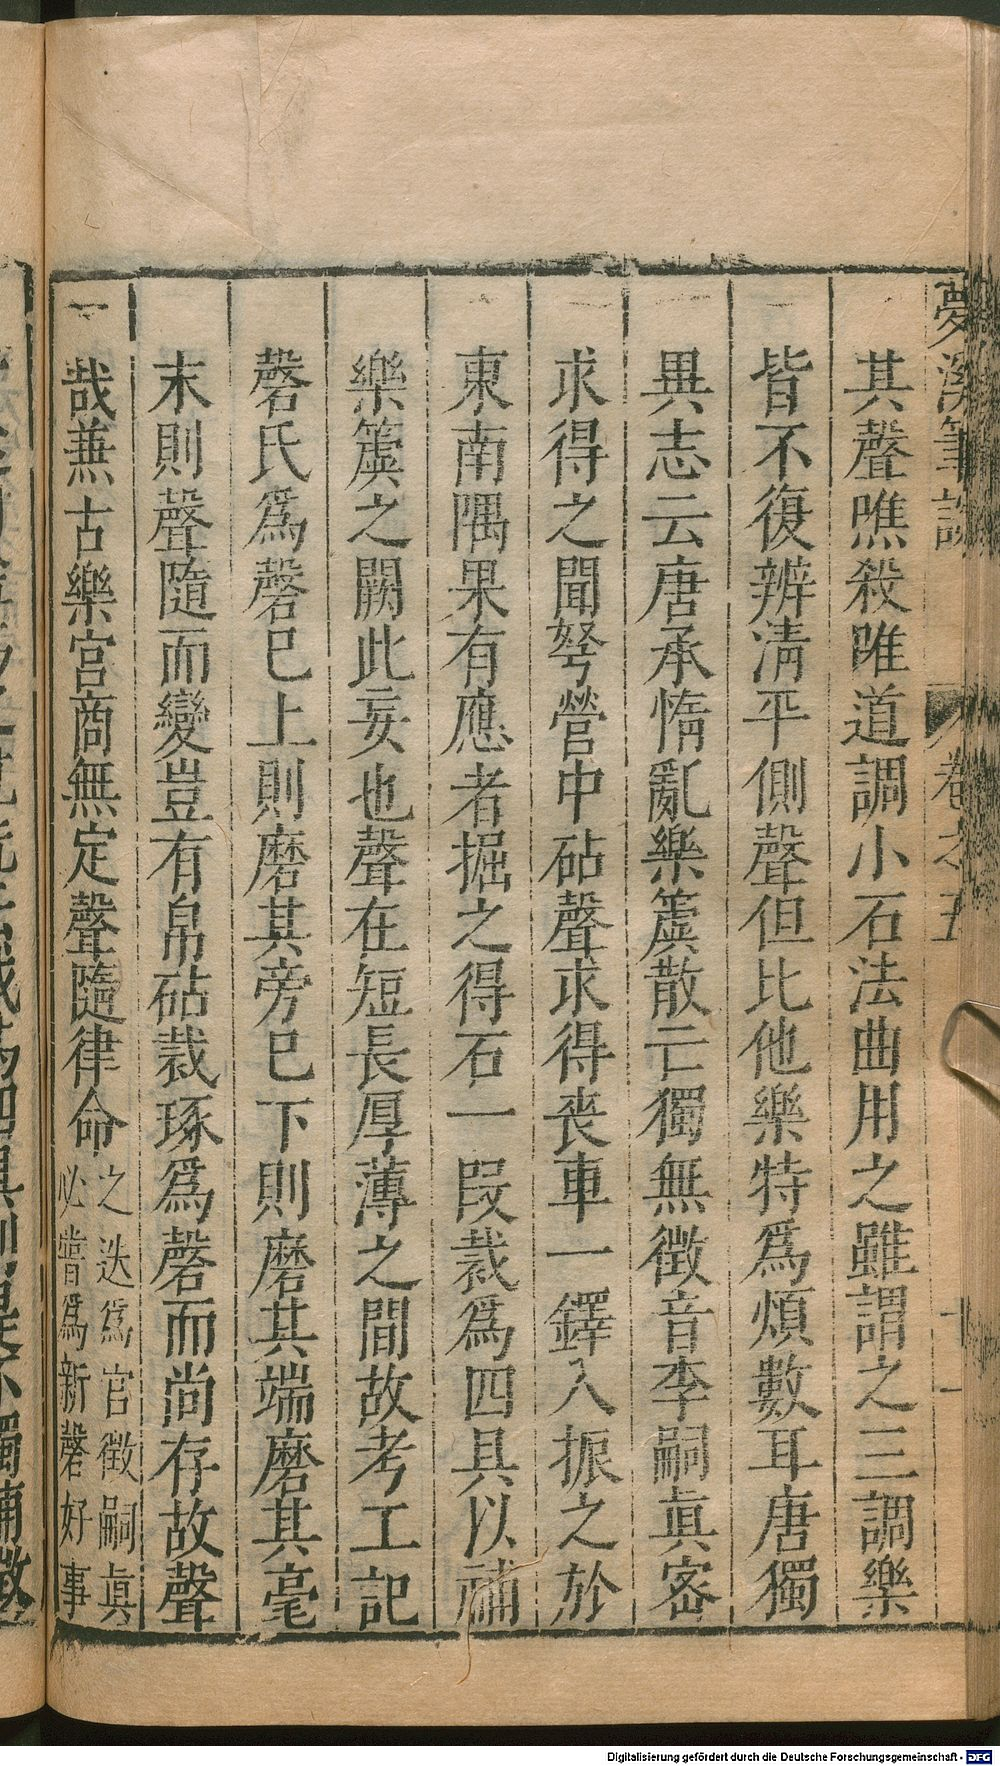 夢溪筆談 卷之五 十一
其聲噍殺唯道調小石法曲用之雖謂之三調樂
皆不復辨淸平側聲但比他樂特爲煩數耳唐獨
異志云唐承惰亂樂簴散亡獨無徵音李嗣眞密
求得之聞弩營中砧聲求得喪車一鐸入振之於
東南隅果有應者掘之得石一段裁爲四具以補
樂簴之闕此妄也聲在短長厚薄之間故考工記
磬氏爲磬已上則磨其旁已下則磨其端磨其毫
末則聲隨而變豈有帛砧裁琢爲磬而尚存故聲
哉兼古樂宮商無定聲隨律命
之迭爲宮徵嗣眞
必嘗爲新磬好事
Digitalisierung gefördert durch die Deutsche Forschungsgemeinschaft - DFG